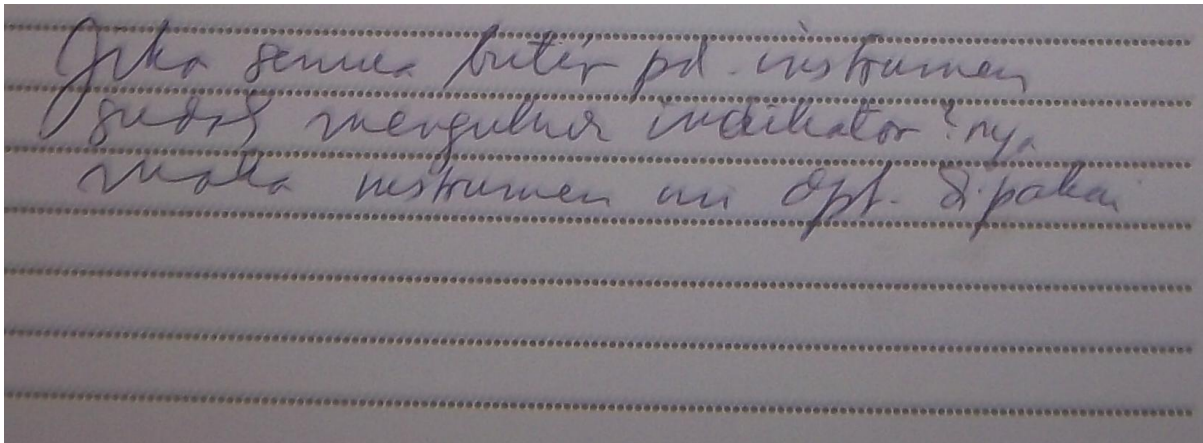 Jika semua butir pd. instrumen
sudah mengukur indikator2nya
maka instrumen ini dpt. dipakai